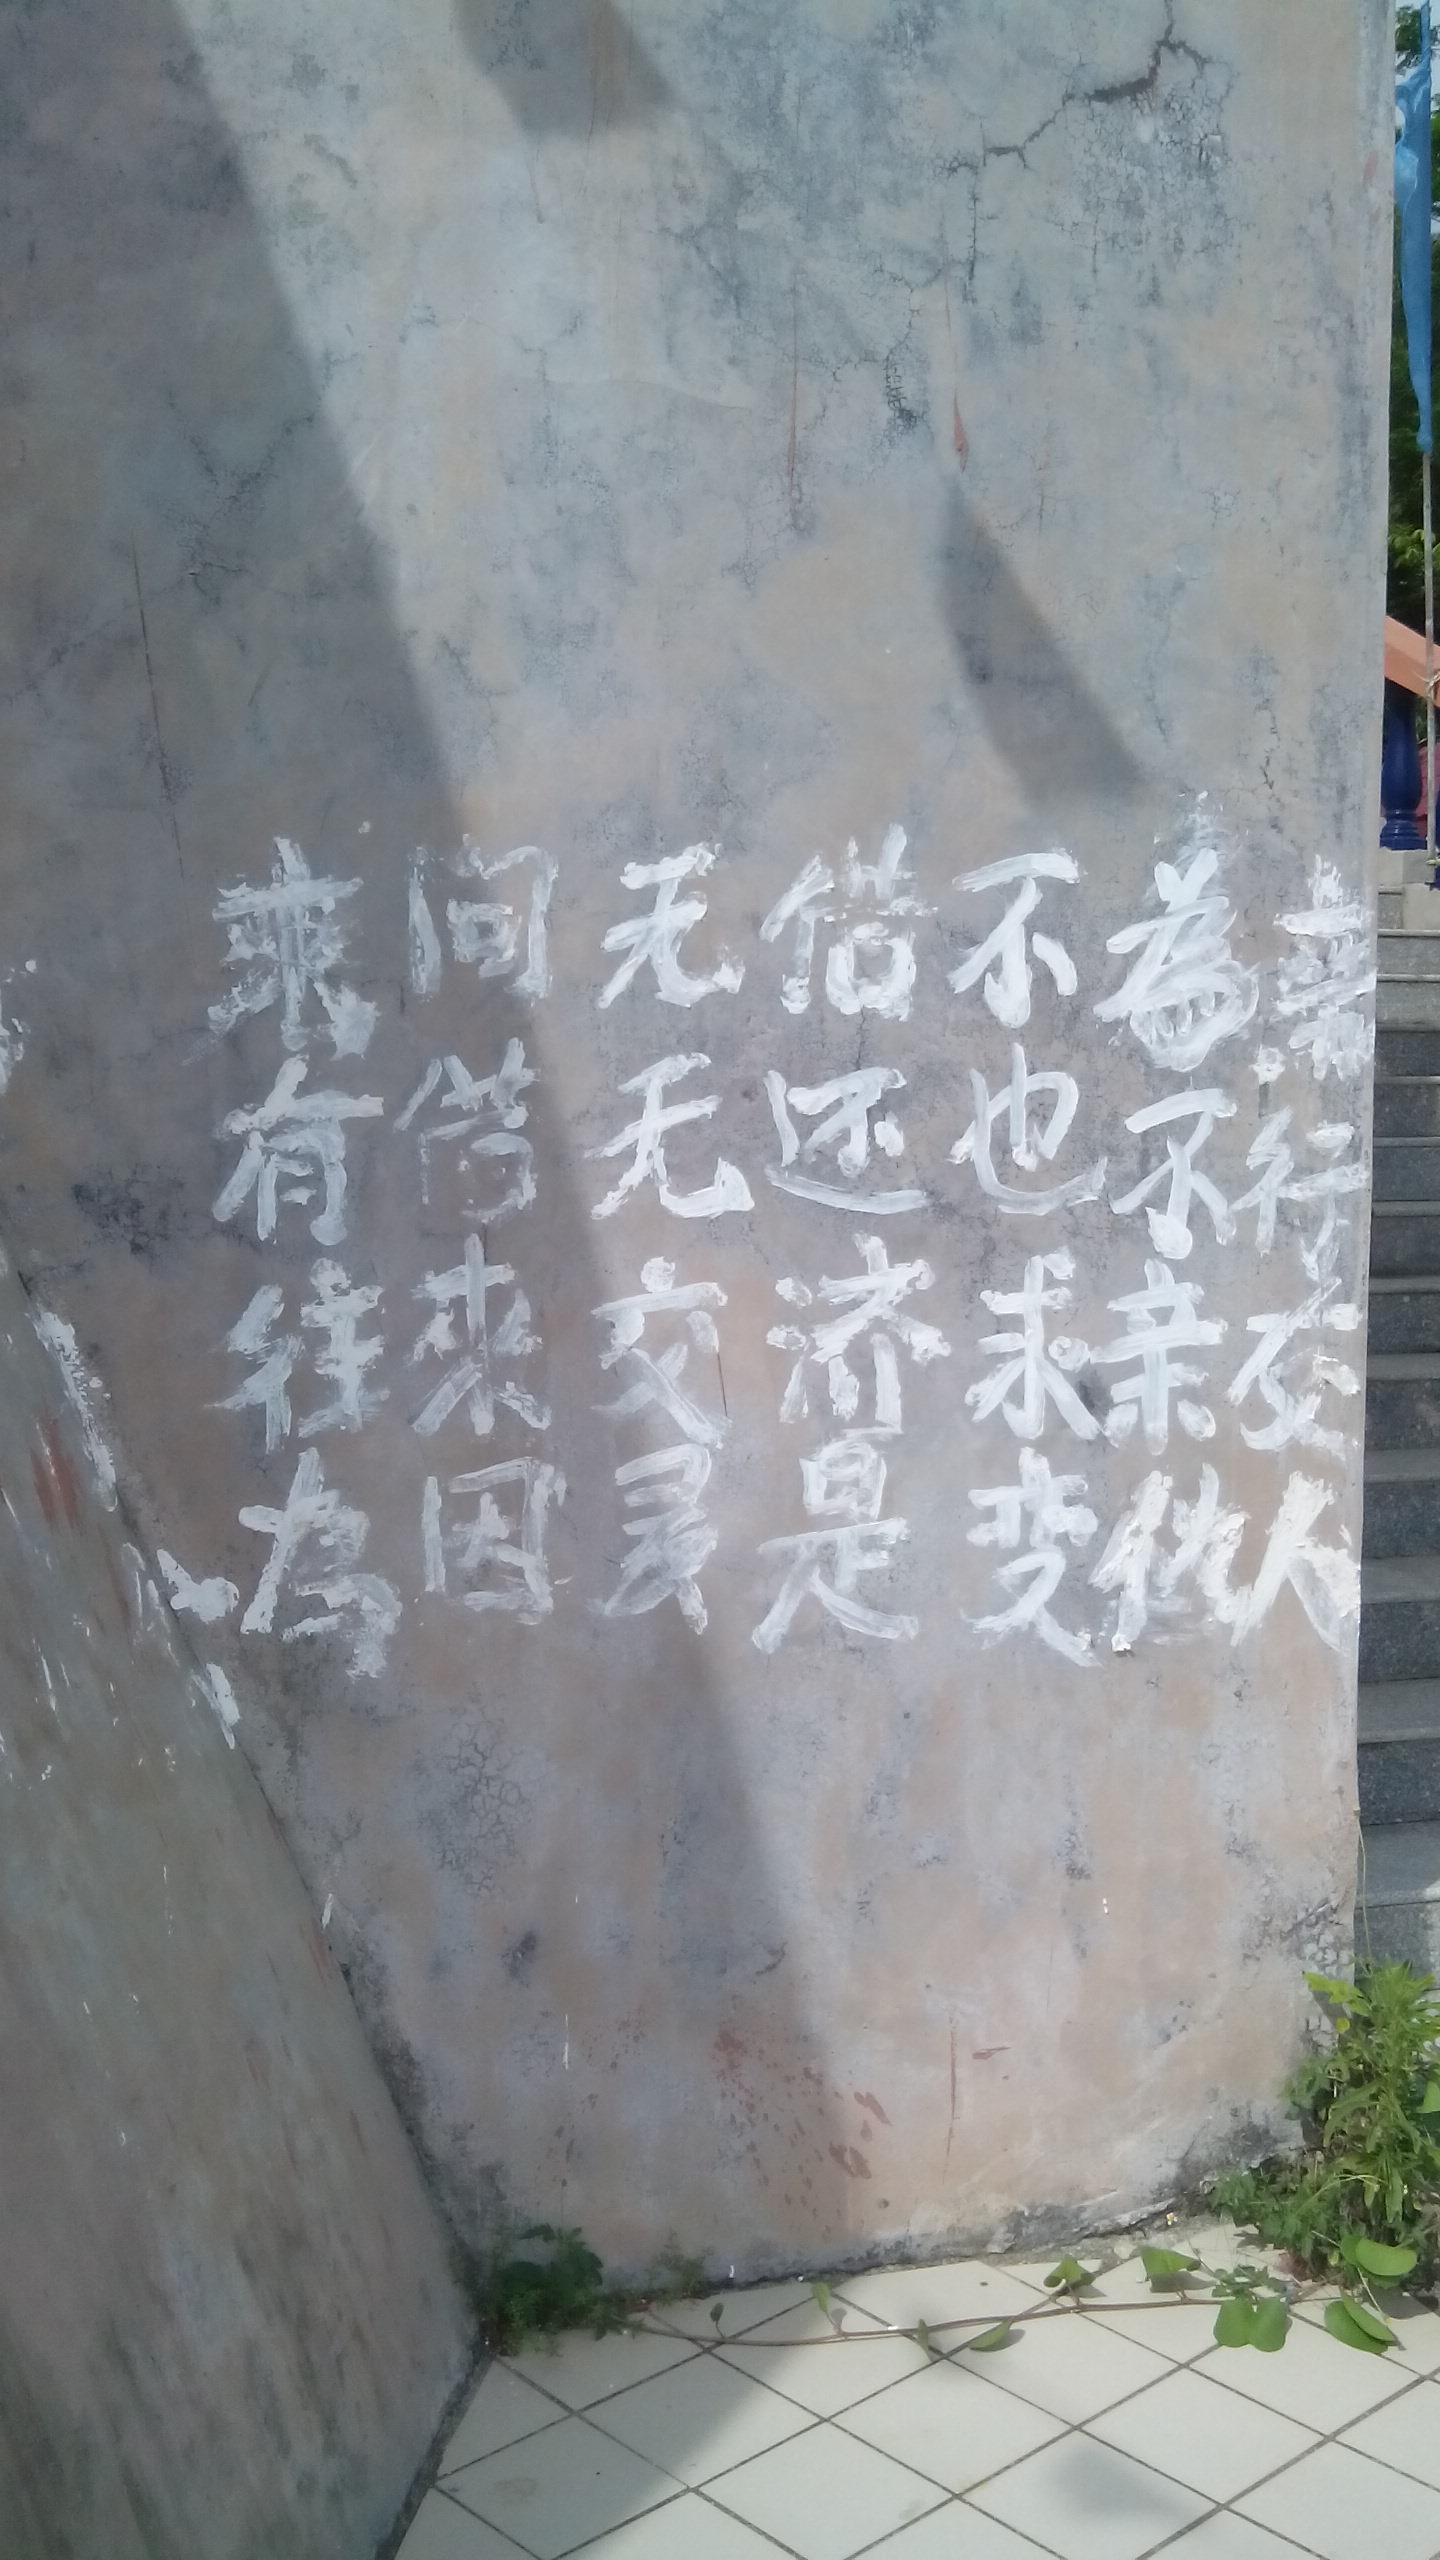 来问无借不為亲
有借无还也不行
往來交济求亲友
为因灵是变他人